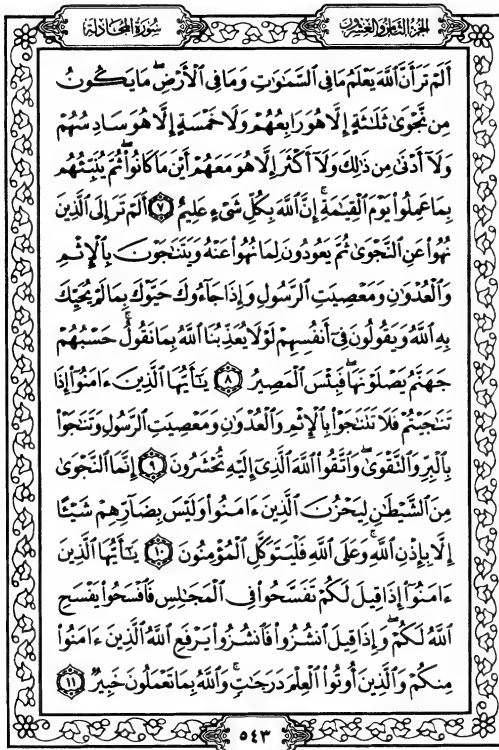 سُورَةُ المُجَادلَة
الجُزءُ الثَّامِنُ وَالعِشرُونَ
أَلَمْ تَرَ أَنَّ ٱللَّهَ يَعْلَمُ مَا فِى ٱلسَّمَٰوَٰتِ وَمَا فِى ٱلْأَرْضِ ۖ مَا يَكُونُ
مِن نَّجْوَىٰ ثَلَٰثَةٍ إِلَّا هُوَ رَابِعُهُمْ وَلَا خَمْسَةٍ إِلَّا هُوَ سَادِسُهُمْ
وَلَآ أَدْنَىٰ مِن ذَٰلِكَ وَلَآ أَكْثَرَ إِلَّا هُوَ مَعَهُمْ أَيْنَ مَا كَانُوا۟ ۖ ثُمَّ يُنَبِّئُهُم
بِمَا عَمِلُوا۟ يَوْمَ ٱلْقِيَٰمَةِ ۚ إِنَّ ٱللَّهَ بِكُلِّ شَىْءٍ عَلِيمٌ ٧ أَلَمْ تَرَ إِلَى ٱلَّذِينَ
نُهُوا۟ عَنِ ٱلنَّجْوَىٰ ثُمَّ يَعُودُونَ لِمَا نُهُوا۟ عَنْهُ وَيَتَنَٰجَوْنَ بِٱلْإِثْمِ
وَٱلْعُدْوَٰنِ وَمَعْصِيَتِ ٱلرَّسُولِ وَإِذَا جَآءُوكَ حَيَّوْكَ بِمَا لَمْ يُحَيِّكَ
بِهِ ٱللَّهُ وَيَقُولُونَ فِىٓ أَنفُسِهِمْ لَوْلَا يُعَذِّبُنَا ٱللَّهُ بِمَا نَقُولُ ۚ حَسْبُهُمْ
جَهَنَّمُ يَصْلَوْنَهَا ۖ فَبِئْسَ ٱلْمَصِيرُ ٨ يَٰٓأَيُّهَا ٱلَّذِينَ ءَامَنُوٓا۟ إِذَا
تَنَٰجَيْتُمْ فَلَا تَتَنَٰجَوْا۟ بِٱلْإِثْمِ وَٱلْعُدْوَٰنِ وَمَعْصِيَتِ ٱلرَّسُولِ وَتَنَٰجَوْا۟
بِٱلْبِرِّ وَٱلتَّقْوَىٰ ۖ وَٱتَّقُوا۟ ٱللَّهَ ٱلَّذِىٓ إِلَيْهِ تُحْشَرُونَ ٩ إِنَّمَا ٱلنَّجْوَىٰ
مِنَ ٱلشَّيْطَٰنِ لِيَحْزُنَ ٱلَّذِينَ ءَامَنُوا۟ وَلَيْسَ بِضَآرِّهِمْ شَيْـًٔا
إِلَّا بِإِذْنِ ٱللَّهِ ۚ وَعَلَى ٱللَّهِ فَلْيَتَوَكَّلِ ٱلْمُؤْمِنُونَ ١٠ يَٰٓأَيُّهَا ٱلَّذِينَ
ءَامَنُوٓا۟ إِذَا قِيلَ لَكُمْ تَفَسَّحُوا۟ فِى ٱلْمَجَٰلِسِ فَٱفْسَحُوا۟ يَفْسَحِ
ٱللَّهُ لَكُمْ ۖ وَإِذَا قِيلَ ٱنشُزُوا۟ فَٱنشُزُوا۟ يَرْفَعِ ٱللَّهُ ٱلَّذِينَ ءَامَنُوا۟
مِنكُمْ وَٱلَّذِينَ أُوتُوا۟ ٱلْعِلْمَ دَرَجَٰتٍ ۚ وَٱللَّهُ بِمَا تَعْمَلُونَ خَبِيرٌ ١١
٥٤٣